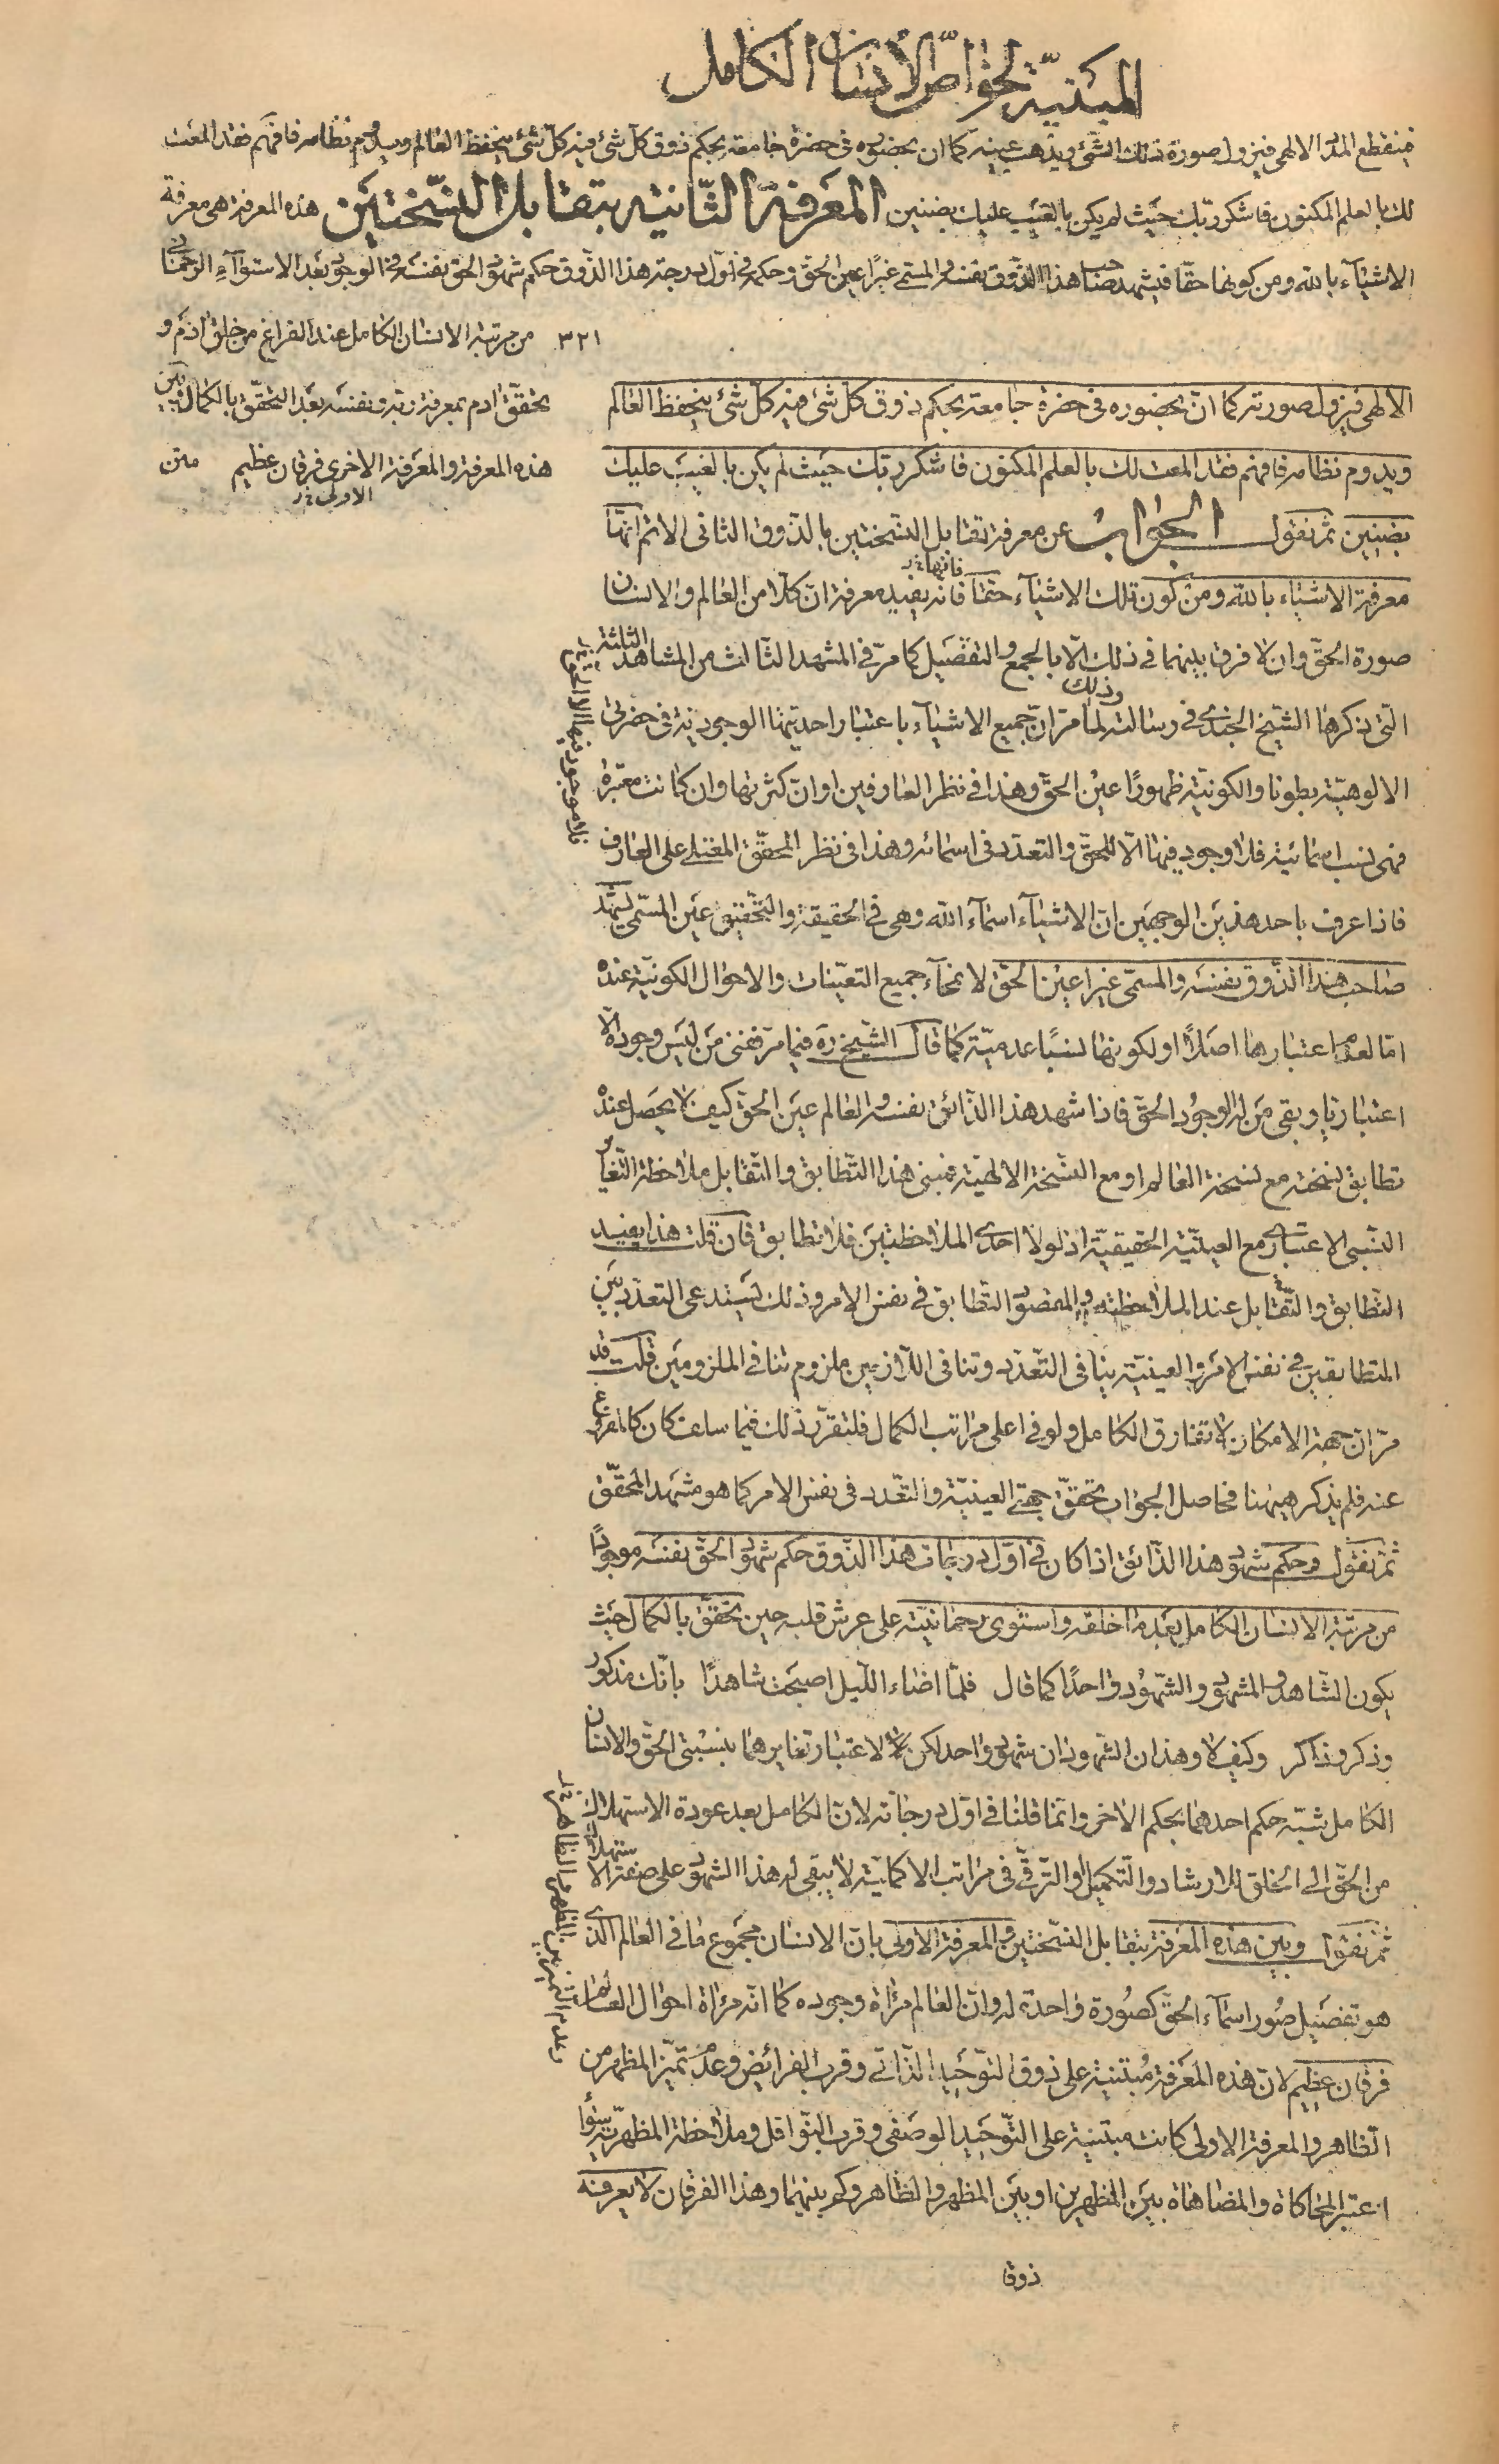 المبنيّة لخواصّ الانسان الكامل
فينقطع المدد الالهى فيزول صورة ذلك الشئ ويذهب عينه كما ان بحضوره فى حضرة جامعة بحكم ذوق كل شئ فيه كلّ شئ ينحفظ العالم ويدوم نظامه فافهم فقد المعت
لك بالعلم المكنون فاشكر ربّك حيث لم يكن بالغيب عليك بضنين المعرفة الثّانية بتقابل النّسختين هذه المعرفة هى معرفة
الاشيآء بالله ومن كونها حقّا فيشهد صاحب هذا الذّوق نفسه والمسمّى غيرًا عين الحقّ وحكمه فى اوّل درجة هذا الذّوق حكم شهود الحقّ نفسه فى الوجود بعد الاستوآء الرّحمانى
٣٢١ من مرتبة الانسان الكامل عند الفراغ من خلق ادم و
تحقّق ادم بمعرفة ربّه ونفسه بعد التحقّق بالكمال وبين
هذه المعرفة والمعرفة الاخرى فرقان عظيم متن
الاولى
الالهى فيزول صورته كما انّ بحضوره فى حضرة جامعة بحكم ذوق كل شئ فيه كل شئ ينحفظ العالم
ويدوم نظامه فافهم فقد المعت لك بالعلم المكنون فاشكر ربّك حيث لم يكن بالغيب عليك
بضنين ثم نقول الجواب عن معرفة تقابل النسختين بالذّوق الثانى الاتم انّها
معرفة الاشياء بالله ومن كون تلك الاشيآء حقّا فانّه يفيد معرفة انّ كلّا من العالم والانسان
فانّها
صورة الحقّ وان لا فرق بينهما فى ذلك الّا بالجمع والتفصيل كما مرّ فى المشهد الثالث من المشاهد الثلثة
وذلك
التى ذكرها الشّيخ الجندى فى رسالته لما مرّ انّ جميع الاشيآء باعتبار احديّتها الوجودية فى حضرتى
الالوهيّة بطونا والكونيّة ظهورًا عين الحقّ وهذا فى نظر العارفين او انّ كثرتها وان كانت معتبرة
فهى نسب اسمائيّة فلا وجود فيها الّا للحقّ والتعدّد فى اسمائه وهذا فى نظر المحقّق المعتلى على العارف
فلا موجود فيها الا الحق
فاذا عرف باحد هذين الوجهين ان الاشيآء اسمآء الله وهى فى الحقيقة والتحقيق عين المسمّى يشهد
صاحب هذا الذّوق نفسه والمسمّى غيرا عين الحقّ لانمحآء جميع التعيّنات والاحوال الكونيّة عنده
امّا لعدم اعتبارها اصلًا او لكونها نسبًا عدميّة كما قال الشّيخ ره فيما مرّ ففنى من ليس وجوده الّا
اعتباريا وبقى من له الوجود الحقّ فاذا شهد هذا الذّائق نفسه والعالم عين الحقّ كيف لا يحصل عنده
تطابق نسخته مع نسخة العالم او مع النسخة الالهيّة فمبنى هذا التّطابق والتّقابل ملاحظة التّغاير
النسبى الاعتبارى مع العينيّة الحقيقيّة اذ لولا احدى الملاحظتين فلا تطابق فان قلت هذا يفيد
التّطابق والتّقابل عند الملاحظة والمقصود التّطابق فى نفس الامر وذلك يستدعى التعدّد بين
المتطابقين فى نفس الامر والعينيّة ينافى التّعدّد وتنافى اللّازمين ملزوم تنافى الملزومين قلت قد
مرّ انّ جهة الامكان لا تفارق الكامل ولو فى اعلى مراتب الكمال فلتقرّر ذلك فيما سلف كان كالمفروغ
عنه فلم يذكر هيهنا فحاصل الجواب تحقّق جهتى العينيّة والتعدّد فى نفس الامر كما هو مشهد المحقّق
ثمّ نقول وحكم شهود هذا الذّائق اذا كان فى اوّل درجات هذا الذّوق حكم شهود الحقّ نفسه موجودًا
من مرتبة الانسان الكامل بعد ما خلقه واستوى رحمانيّته على عرش قلبه حين تحقّق بالكمال حيث
يكون الشّاهد والمشهود والشّهود واحدًا كما قال فلمّا اضاء اللّيل اصبحت شاهدًا بانّك مذكور
وذكر وذاكر وكيف لا وهذان الشّهودان شهود واحد لكن لاعتبار تغايرهما بنسبتى الحقّ والانسان
الكامل شبّه حكم احدهما بحكم الاخر وانّما قلنا فى اوّل درجاته لانّ الكامل بعد عودة الاستهلاك
من الحقّ الى الخلق للارشاد والتّكميل او التّرقّى فى مراتب الاكمليّة لا يبقى له هذا الشهود على صفة الاستهلاك
ثمّ نقول وبين هذه المعرفة بتقابل النّسختين والمعرفة الاولى بانّ الانسان مجموع ما فى العالم الّذى
هو تفصيل صُور اسمآء الحقّ كصُورة واحدة له وانّ العالم مرآة وجوده كما انّه مرآة احوال العالم
وعدم التّميّز بين المظهر والظّاهر
فرقان عظيم لانّ هذه المعرفة مُبتنية على ذوق التّوحيد الذّاتى وقرب الفرائض وعدم تميّز المظهر من
الظّاهر والمعرفة الاولى كانت مبتنية على التّوحيد الوصفى وقرب النّوافل وملاحظة المظهريّة سوآء
اعتبر المحاكاة والمضاهاة بين المظهرين او بين المظهر والظّاهر وكم بينهما وهذا الفرقان لا يعرفه
ذوقا